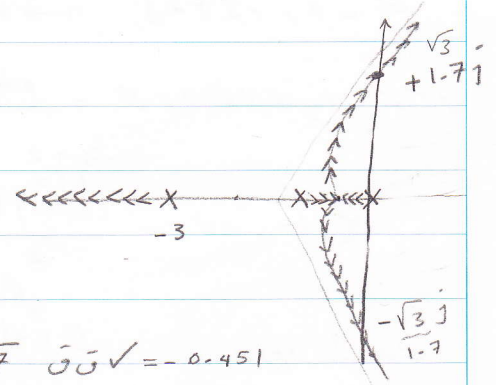 √3
+ 1.7 j
-3
-√3 j
1.7
✓ = - 0.451